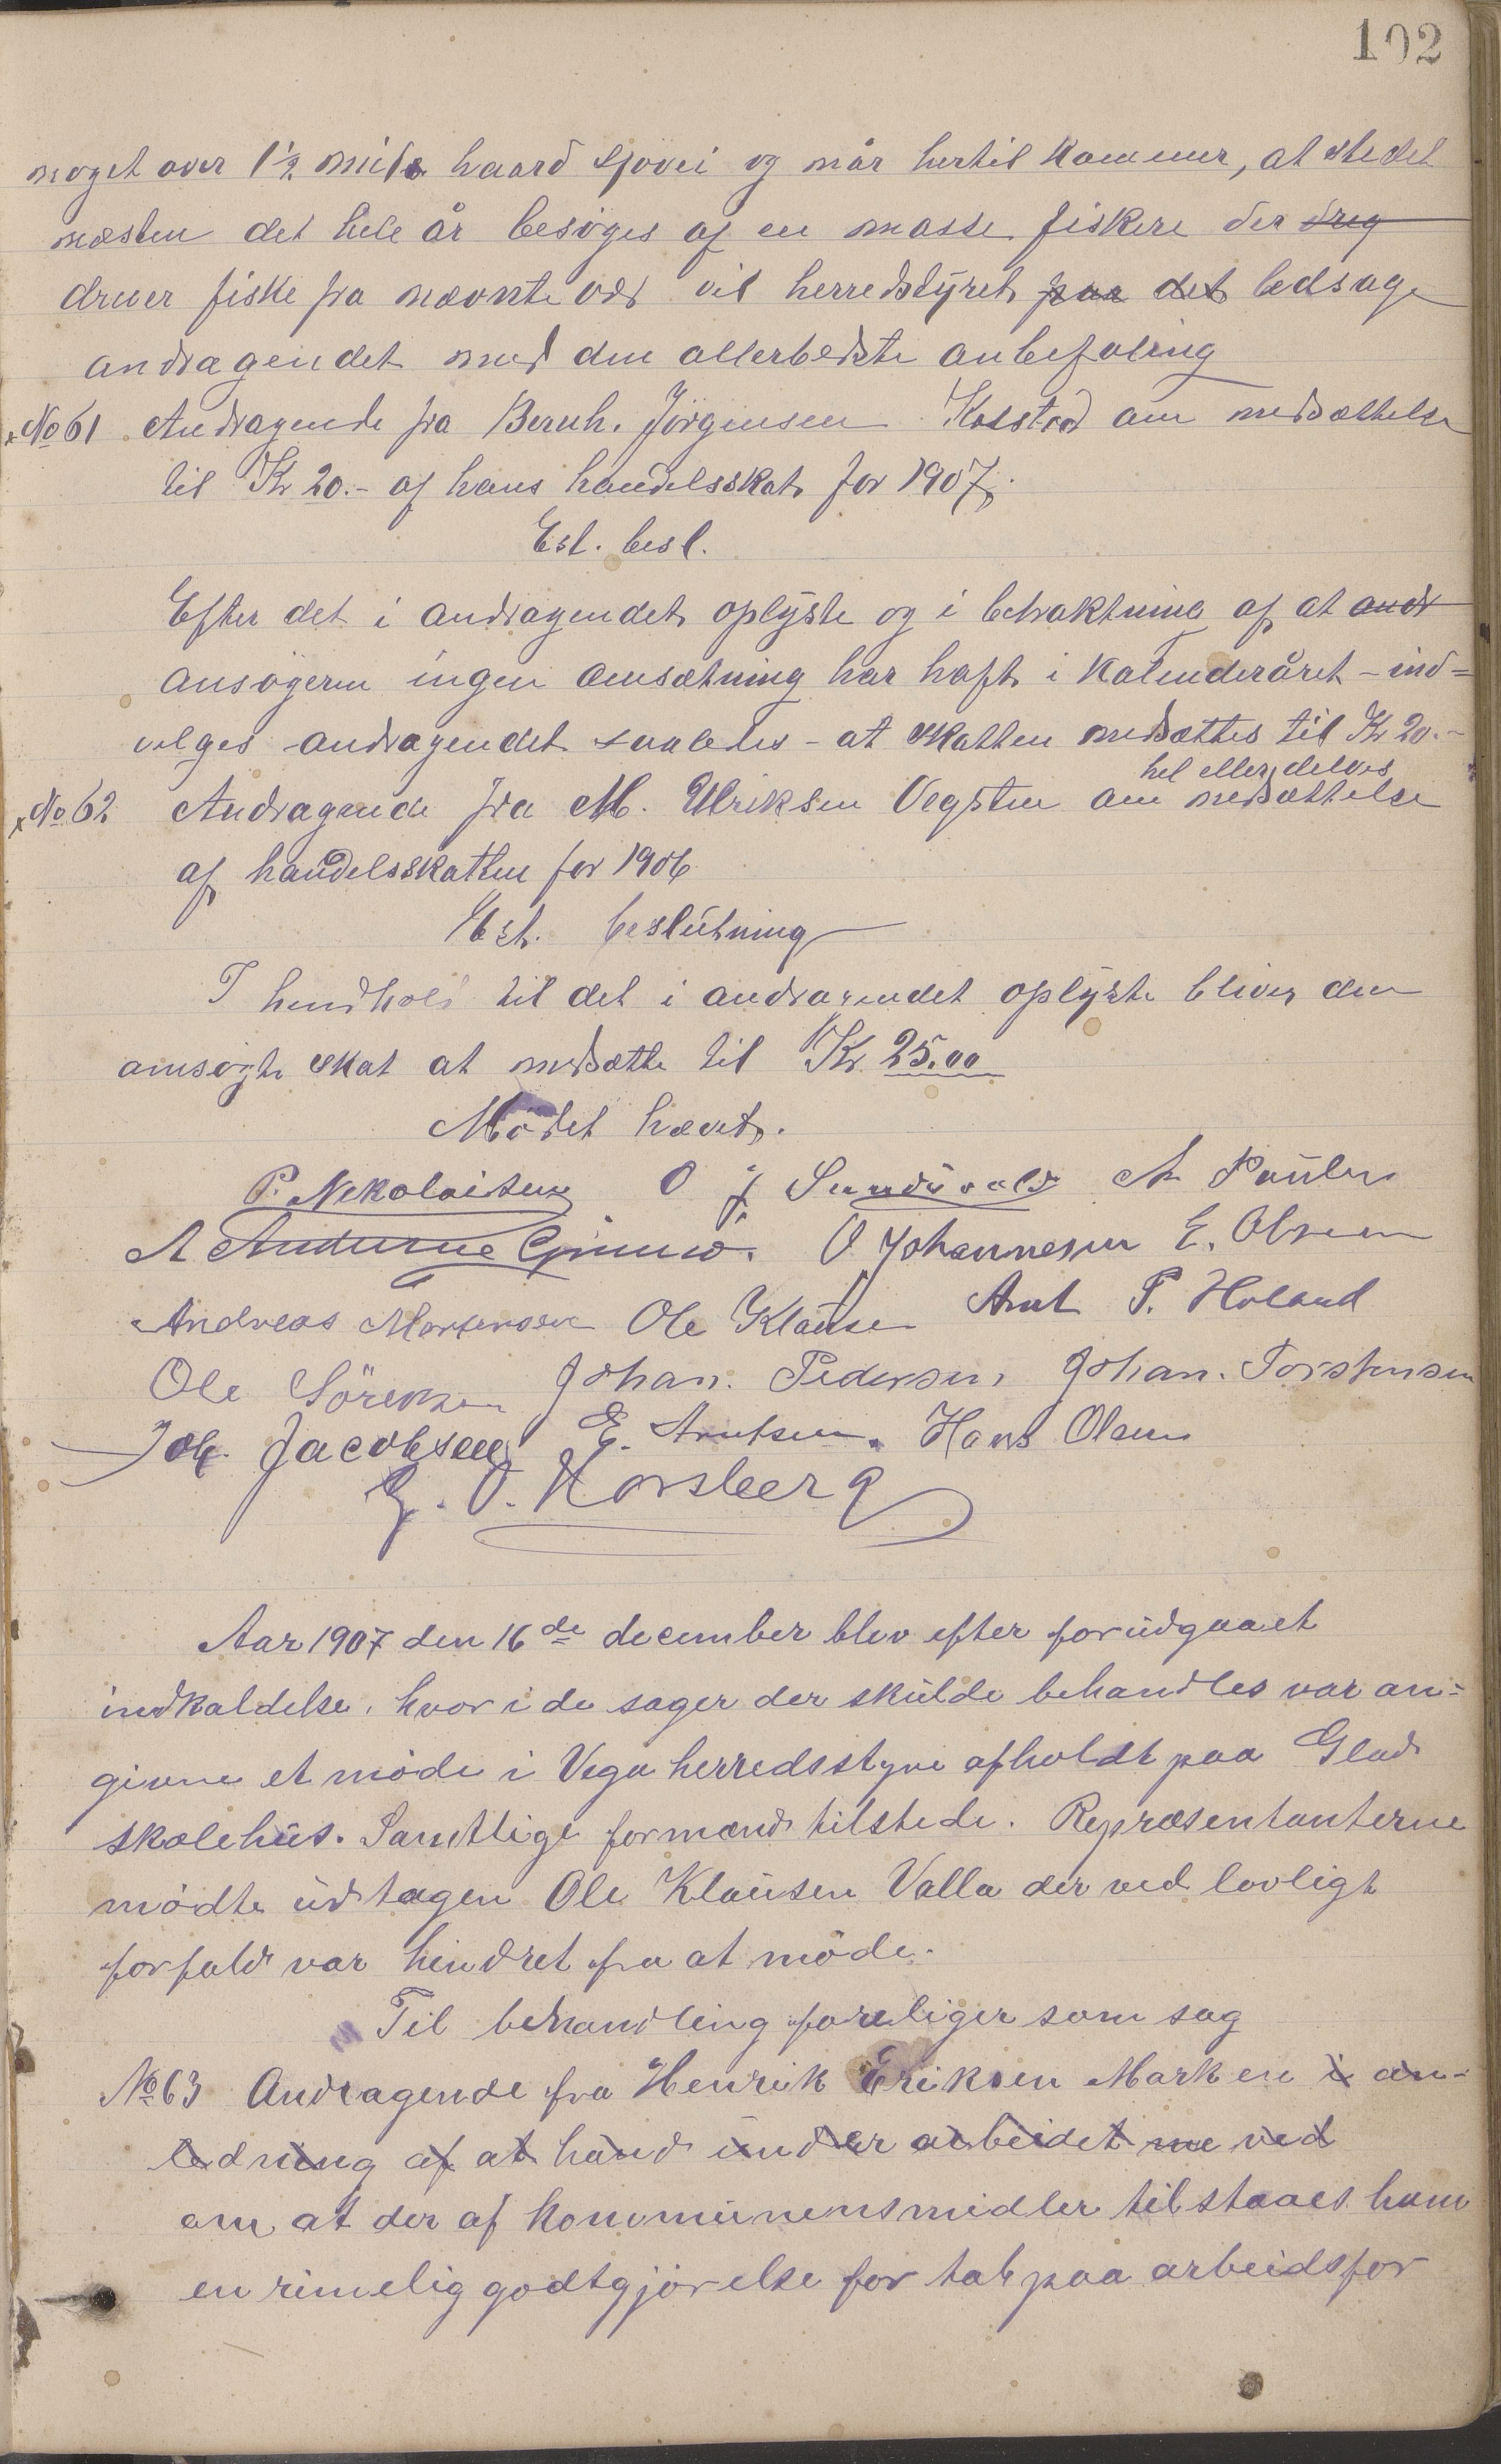 102
noget over 1½ mils haard sjøvei og når hertil kommer, at stedet
næsten det hele år besøges af en masse fiskere der dreg
driver fiske fra nævnte vær vil herredstyret paa det ledsage
andragendet med den allerbedste anbefaling
No 61 Andragende fra Bernh. Jörgensen Kolstad om nedsættelse
til Kr 20.- af hans handelsskat for 1907.
Est. besl.
Efter det i andragendet oplyste og i betraktning af at andr
ansøgeren ingen omsætning har haft i kalenderåret - ind=
vilges andragendet saaledes - at skatten nedsættes til Kr 20.-
hel eller delvis
No 62 Andragende fra M. Ulriksen Vegsten om nedsættelse
af handelsskatten for 1906
Est. beslutning
I henhold til det i andragendet oplyste bliver den
omsøgte skat at nedsætte til Kr. 25.00
Mödet hævet.
P. Nekolaisen O J Sundsvold A Paulsen
A Andersen Grimsø. O Johannesen E. Olsen
Andreas Mortensen Ole Klausen Arnt P. Holand
Ole Sörensen Johan. Pedersen Johan. Torstensen
Joh. Jacobsen E. Arntsen. Hans Olsen
G. O. Korsberg
Aar 1907 den 16de december blev efter forudgaaet
indkaldelse, hvor i de sager der skulde behandles var an=
givne et möde i Vega herredsstyre afholdt paa Glad
skolehus. Samtlige formænd tilstede. Repræsentanterne
mödte udtagen Ole Klausen Valla der ved lovligt
forfald var hindret fra at möde.
Til behandling foreliger som sag
No 63 Andragende fra Henrik Eriksen Marken i an-
ledning af at hand under arbeidet me ved
om at der af kommunensmidler tilstaaes ham
en rimelig godtgjörelse for tab paa arbeidsfor